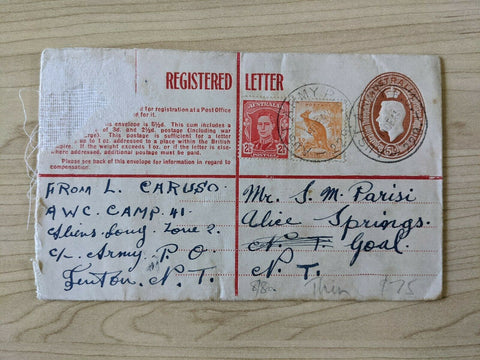 REGISTERED LETTER
d for registration at a Post Office
for it.
is envelope is 5½d. This amount
of 3d. and 2½d. postage (including war
arge). This postage is sufficient for a letter
up to 1 oz. addressed to a place within the British
Empire. If the weight exceeds 1 oz. or if the letter is else-
where addressed, additional postage must be paid.
Please see back of this envelope for information in regard to
compensation.
AUSTRALIA
2½ 2½
POSTAGE
ARMY P.
AUSTRALIA
FROM L. CARUSO.
A.W.C. CAMP. 41.
Aliens Coy. Zone 2.
C/o Army P.O.
Fenton. N.T.
Mr. S. M. Parisi
Alice Springs.
N. T. Goal.
N. T.
8/80
Thin
$75